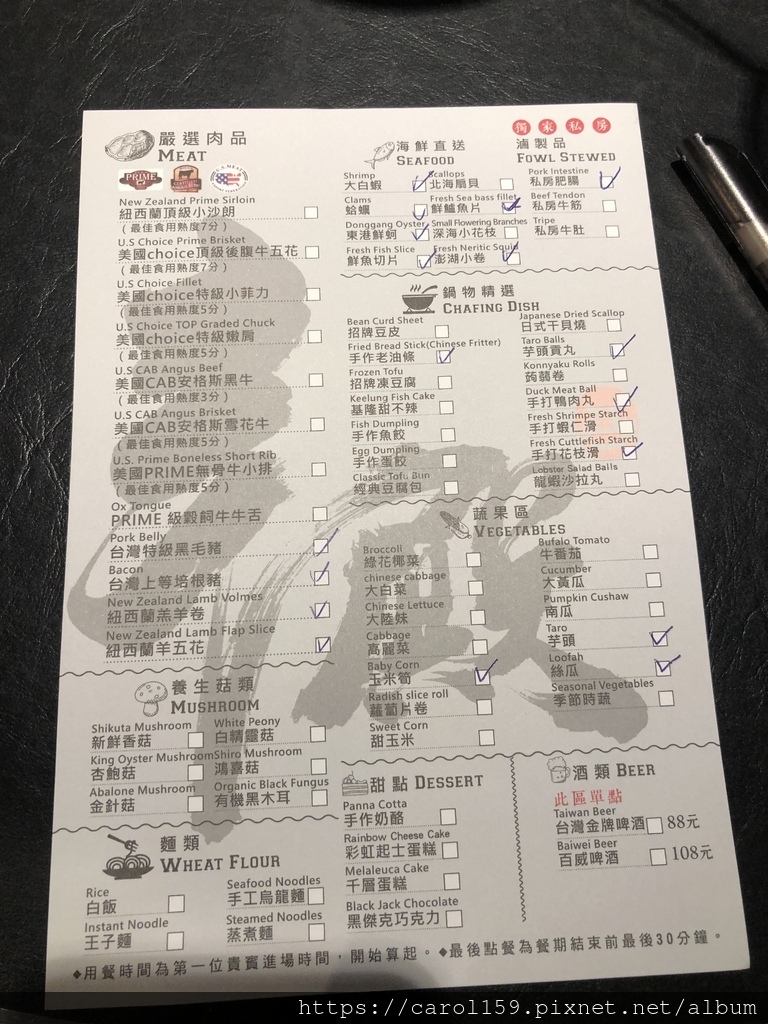 嚴選肉品
MEAT
PRIME
New Zealand Prime Sirloin
紐西蘭頂級小沙朗
(最佳食用熟度7分)
U.S Choice Prime Brisket
美國choice頂級後腹牛五花
(最佳食用熟度7分)
U.S Choice Fillet
美國choice特級小菲力
(最佳食用熟度5分)
U.S Choice TOP Graded Chuck
美國choice特級嫩肩
(最佳食用熟度5分)
U.S CAB Angus Beef
美國CAB安格斯黑牛
(最佳食用熟度3分)
U.S CAB Angus Brisket
美國CAB安格斯雪花牛
(最佳食用熟度5分)
U.S. Prime Boneless Short Rib
美國PRIME無骨牛小排
(最佳食用熟度5分)
Ox Tongue
PRIME 級穀飼牛牛舌
Pork Belly
台灣特級黑毛豬
Bacon
台灣上等培根豬
New Zealand Lamb Volmes
紐西蘭羔羊卷
New Zealand Lamb Flap Slice
紐西蘭羊五花
海鮮直送
SEAFOOD
Shrimp
大白蝦
Scallops
北海扇貝
Clams
蛤蠣
Fresh Sea bass fillet
鮮鱸魚片
Donggang Oyster
東港鮮蚵
Small Flowering Branches
深海小花枝
Fresh Fish Slice
鮮魚切片
Fresh Neritic Squid
澎湖小卷
獨家私房
滷製品
FOWL STEWED
Pork Intestine
私房肥腸
Beef Tendon
私房牛筋
Tripe
私房牛肚
鍋物精選
CHAFING DISH
Bean Curd Sheet
招牌豆皮
Fried Bread Stick(Chinese Fritter)
手作老油條
Frozen Tofu
招牌凍豆腐
Keelung Fish Cake
基隆甜不辣
Fish Dumpling
手作魚餃
Egg Dumpling
手作蛋餃
Classic Tofu Bun
經典豆腐包
Japanese Dried Scallop
日式干貝燒
Taro Balls
芋頭貢丸
Konnyaku Rolls
蒟蒻卷
Duck Meat Ball
手打鴨肉丸
Fresh Shrimpe Starch
手打蝦仁滑
Fresh Cuttlefish Starch
手打花枝滑
Lobster Salad Balls
龍蝦沙拉丸
蔬果區
VEGETABLES
Broccoli
綠花椰菜
chinese cabbage
大白菜
Chinese Lettuce
大陸妹
Cabbage
高麗菜
Baby Corn
玉米筍
Radish slice roll
蘿蔔片卷
Sweet Corn
甜玉米
Bufalo Tomato
牛番茄
Cucumber
大黃瓜
Pumpkin Cushaw
南瓜
Taro
芋頭
Loofah
絲瓜
Seasonal Vegetables
季節時蔬
養生菇類
MUSHROOM
Shikuta Mushroom
新鮮香菇
White Peony
白精靈菇
King Oyster Mushroom
杏鮑菇
Shiro Mushroom
鴻喜菇
Abalone Mushroom
金針菇
Organic Black Fungus
有機黑木耳
麵類
WHEAT FLOUR
Rice
白飯
Seafood Noodles
手工烏龍麵
Instant Noodle
王子麵
Steamed Noodles
蒸煮麵
甜點 DESSERT
Panna Cotta
手作奶酪
Rainbow Cheese Cake
彩虹起士蛋糕
Melaleuca Cake
千層蛋糕
Black Jack Chocolate
黑傑克巧克力
酒類 BEER
此區單點
Taiwan Beer
台灣金牌啤酒 88元
Baiwei Beer
百威啤酒 108元
◆用餐時間為第一位貴賓進場時間，開始算起。◆最後點餐為餐期結束前最後30分鐘。
https://carol159.pixnet.net/album